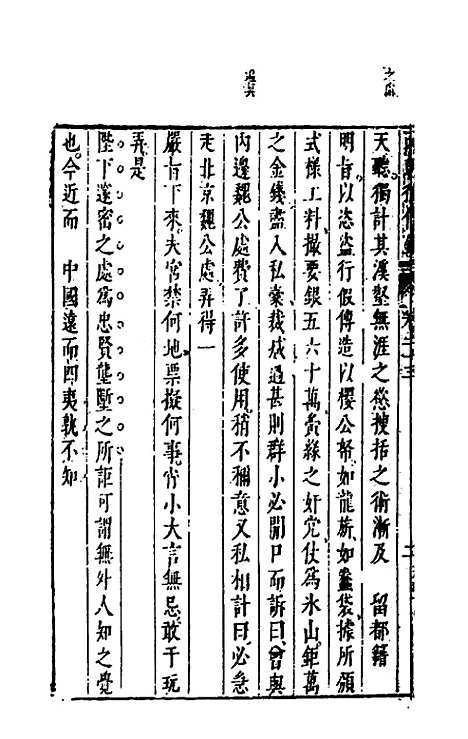 天聽獨計其溪壑無涯之慾搜括之術漸及　留都籍
明旨以恣盜行假傳造以櫻公帑如龍旂如盝袋據所頒
式樣工料撮要銀五六十萬夤緣之奸宄仗為氷山鉅萬
之金錢盡入私橐裁减過甚則群小必開口而訴曰曾與
内邊魏公處費了許多使用稍不稱意又私相計曰必急
走北京魏公處弄得一
嚴旨下來夫宮禁何地票擬何事宵小大言無忌敢干玩
弄是
陛下邃密之處為忠賢壟斷之所詎可謂無外人知之覺
也今近而　中國遠而四夷孰不知